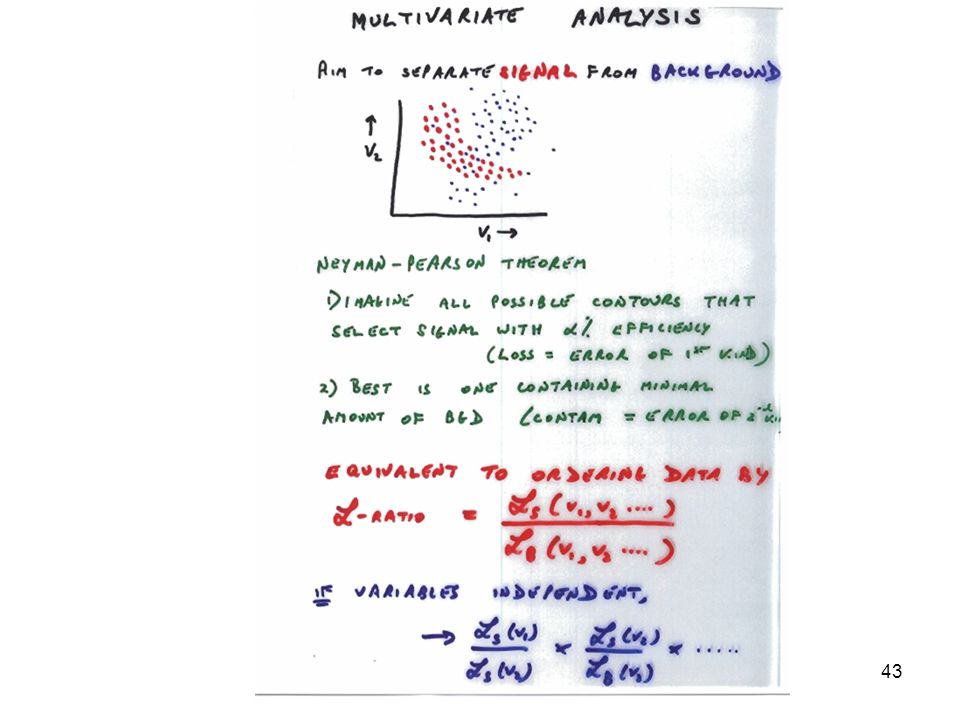 MULTIVARIATE ANALYSIS
AIM TO SEPARATE SIGNAL FROM BACKGROUND
↑
V₂
V₁ →
NEYMAN-PEARSON THEOREM
1) IMAGINE ALL POSSIBLE CONTOURS THAT
SELECT SIGNAL WITH α% EFFICIENCY
(LOSS = ERROR OF 1ST KIND)
2) BEST IS ONE CONTAINING MINIMAL
AMOUNT OF BGD (CONTAM = ERROR OF 2
EQUIVALENT TO ORDERING DATA BY
ℒ-RATIO = ℒs (v₁, v₂ ....)
ℒB (v₁, v₂ ....)
IF VARIABLES INDEPENDENT,
→ ℒs (v₁) × ℒs (v₂) × .....
ℒs (v₂) ℒB (v₂)
43